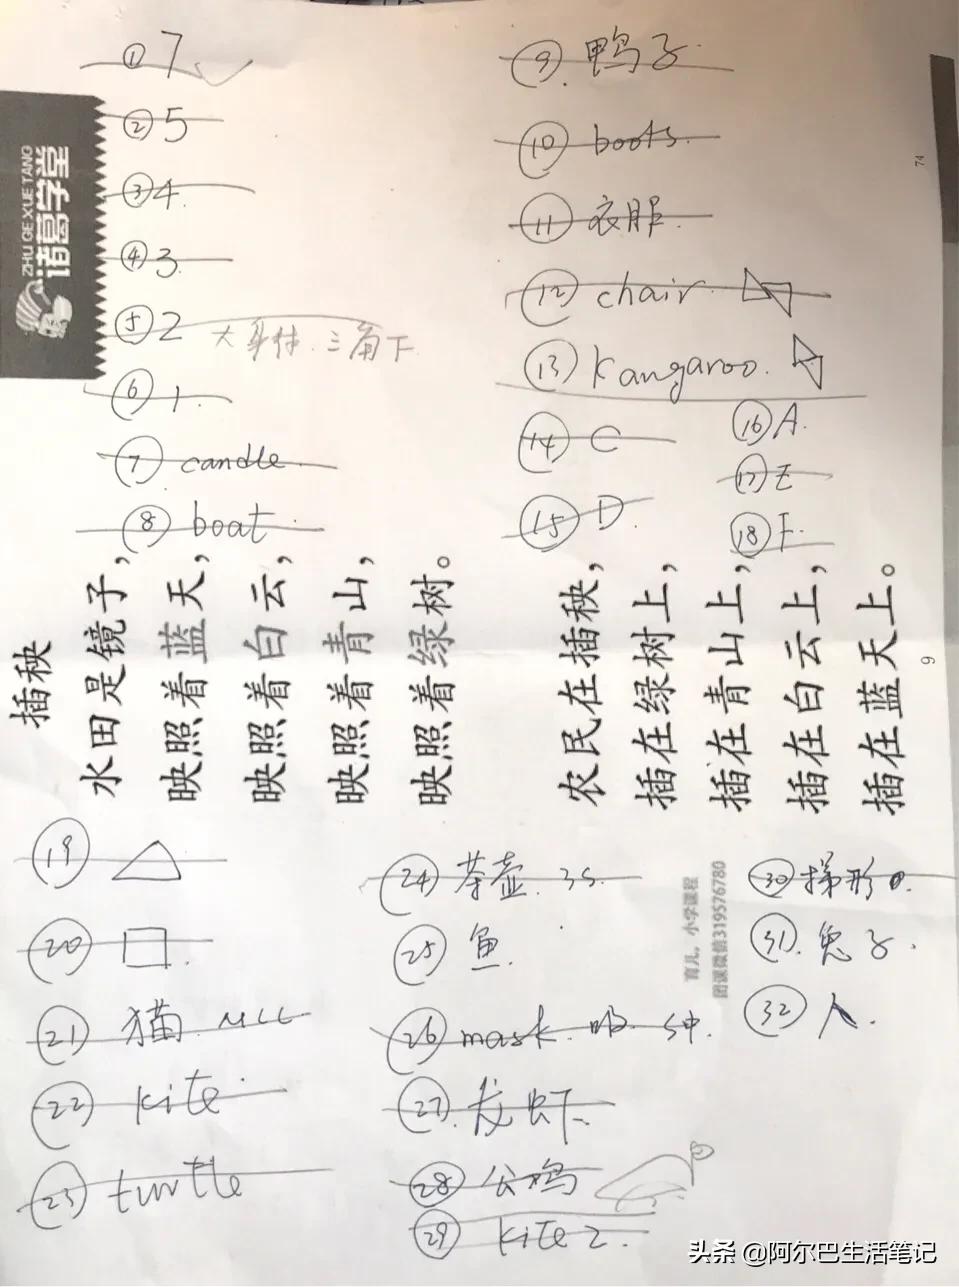 ① 7
② 5
③ 4.
④ 3.
⑤ 2 大身体.三角下
⑥ 1.
⑦ candle.
⑧ boat.
⑨. 鸭子.
⑩ boots.
⑪ 衣服.
⑫ chair.
⑬ kangaroo.
⑭ C
⑮ D.
⑯ A.
⑰ E
⑱ F.
诸葛学堂
ZHU GE XUE TANG
74
插秧
水田是镜子，
映照着蓝天，
映照着白云，
映照着青山，
映照着绿树。
农民在插秧，
插在绿树上，
插在青山上，
插在白云上，
插在蓝天上。
9
⑲
⑳
㉑ 猫.
㉒ kite.
㉓ turtle
㉔ 茶壶.
㉕ 鱼.
㉖ mask.
㉗. 龙虾.
㉘ 公鸡
㉙ kite 2.
㉚ 梯形
㉛ 兔子.
㉜ 人.
育儿，小学课程
团课微信319576780
头条 @阿尔巴生活笔记